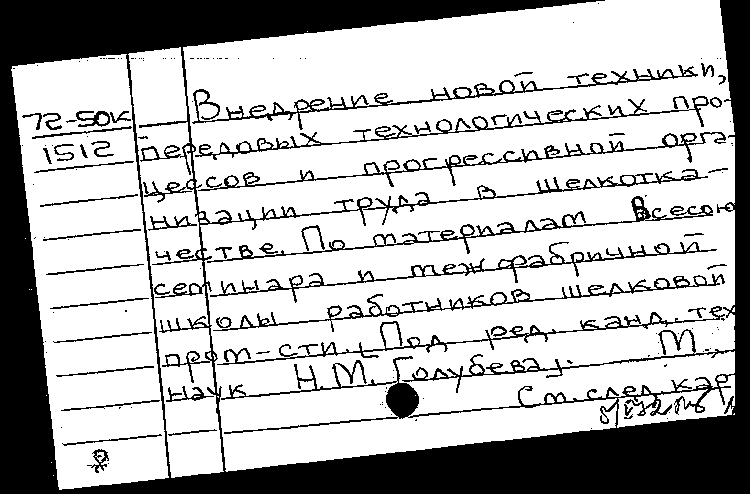 72-50к Внедрение новой техники,
1512 передовых технологических про-
цессов и прогрессивной орга-
низации труда в шелкотка-
честве. По материалам Всесою
семинара и межфабричной
школы работников шелковой
пром-сти. [Под ред. канд. тех
наук Н.М. Голубева]. М.,
См. след. кар